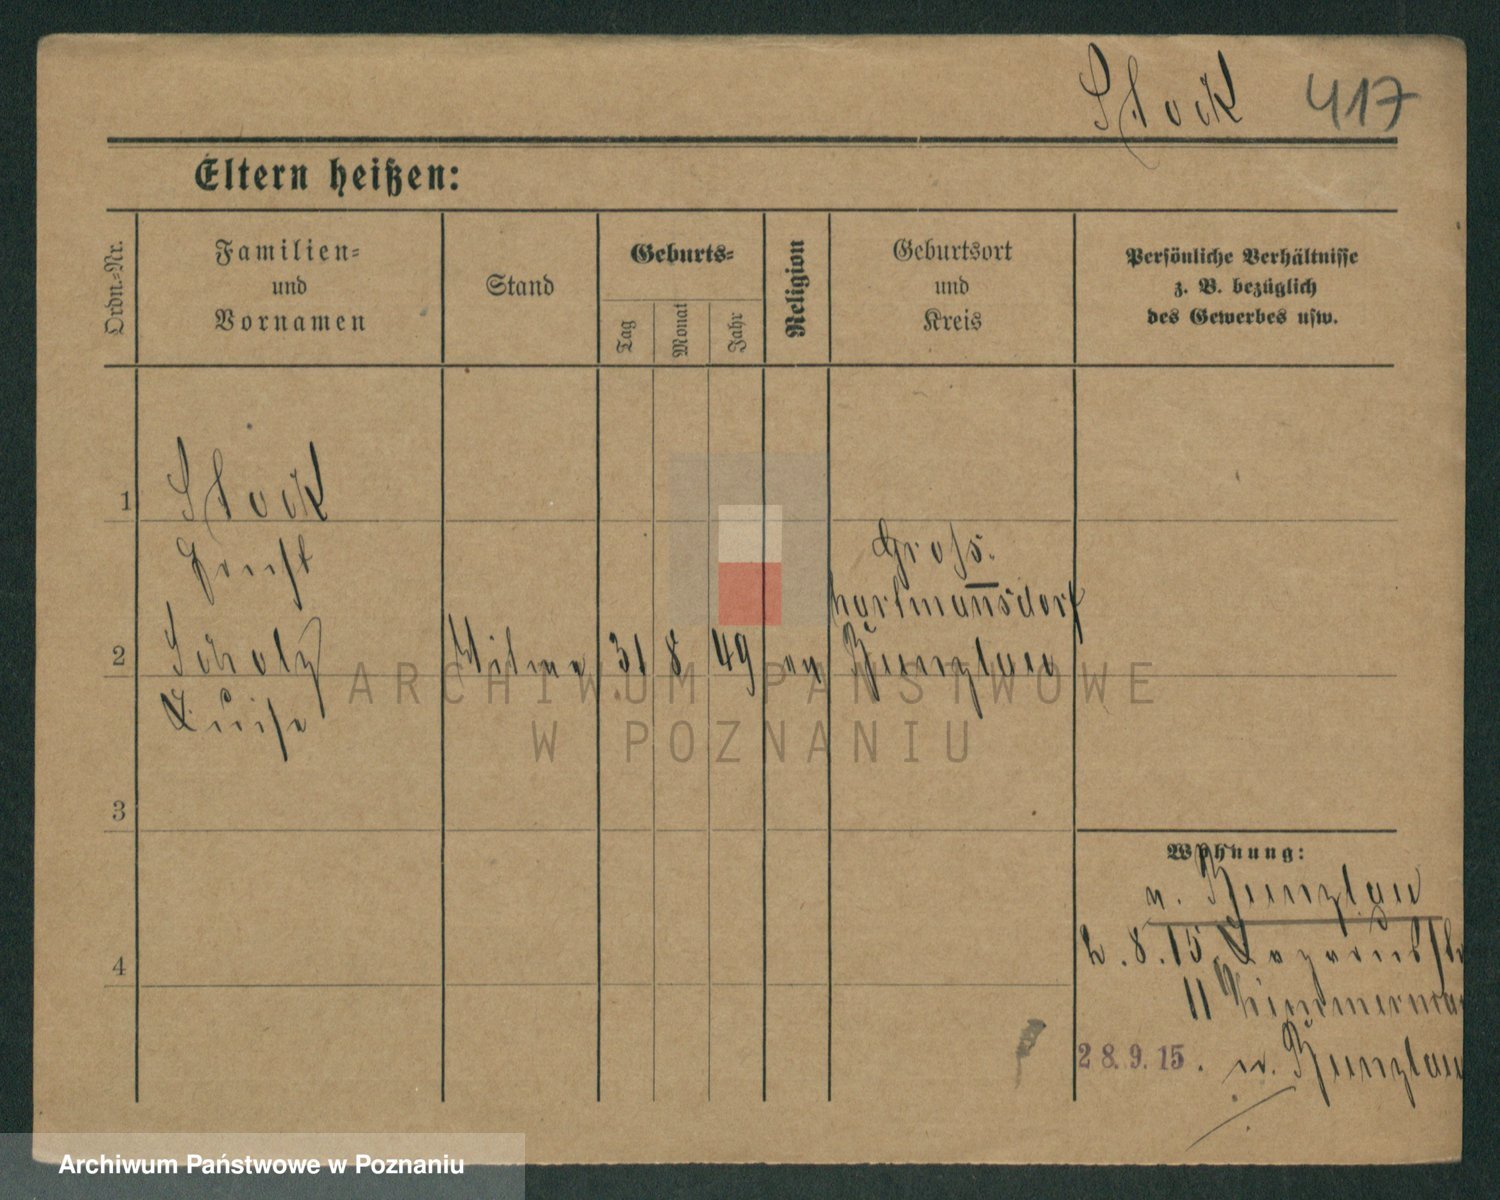 Stock 417
Eltern heißen:
Ordn.-Nr.
Familien-
und
Vornamen
Stand
Geburts-
Tag
Monat
Jahr
Religion
Geburtsort
und
Kreis
Persönliche Verhältnisse
z. B. bezüglich
des Gewerbes usw.
1 Stock
Ernst
2 Scholz
Luise
Witwe 31 8 49 ev
Gross.
hartmannsdorf
Bunzlau
3
4
Wohnung:
v. Bunzlau
2.8.15. Lazarusstr
11 Zimmerma
28.9.15. n. Bunzlau
ARCHIWUM PAŃSTWOWE
W POZNANIU
Archiwum Państwowe w Poznaniu